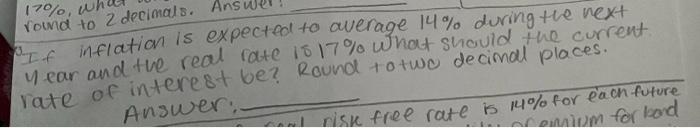 17%, what
round to 2 decimals. Answer:
If inflation is expected to average 14% during the next
year and the real rate is 17% what should the current
rate of interest be? Round to two decimal places.
Answer:
risk free rate is 14% for each future
premium for bond